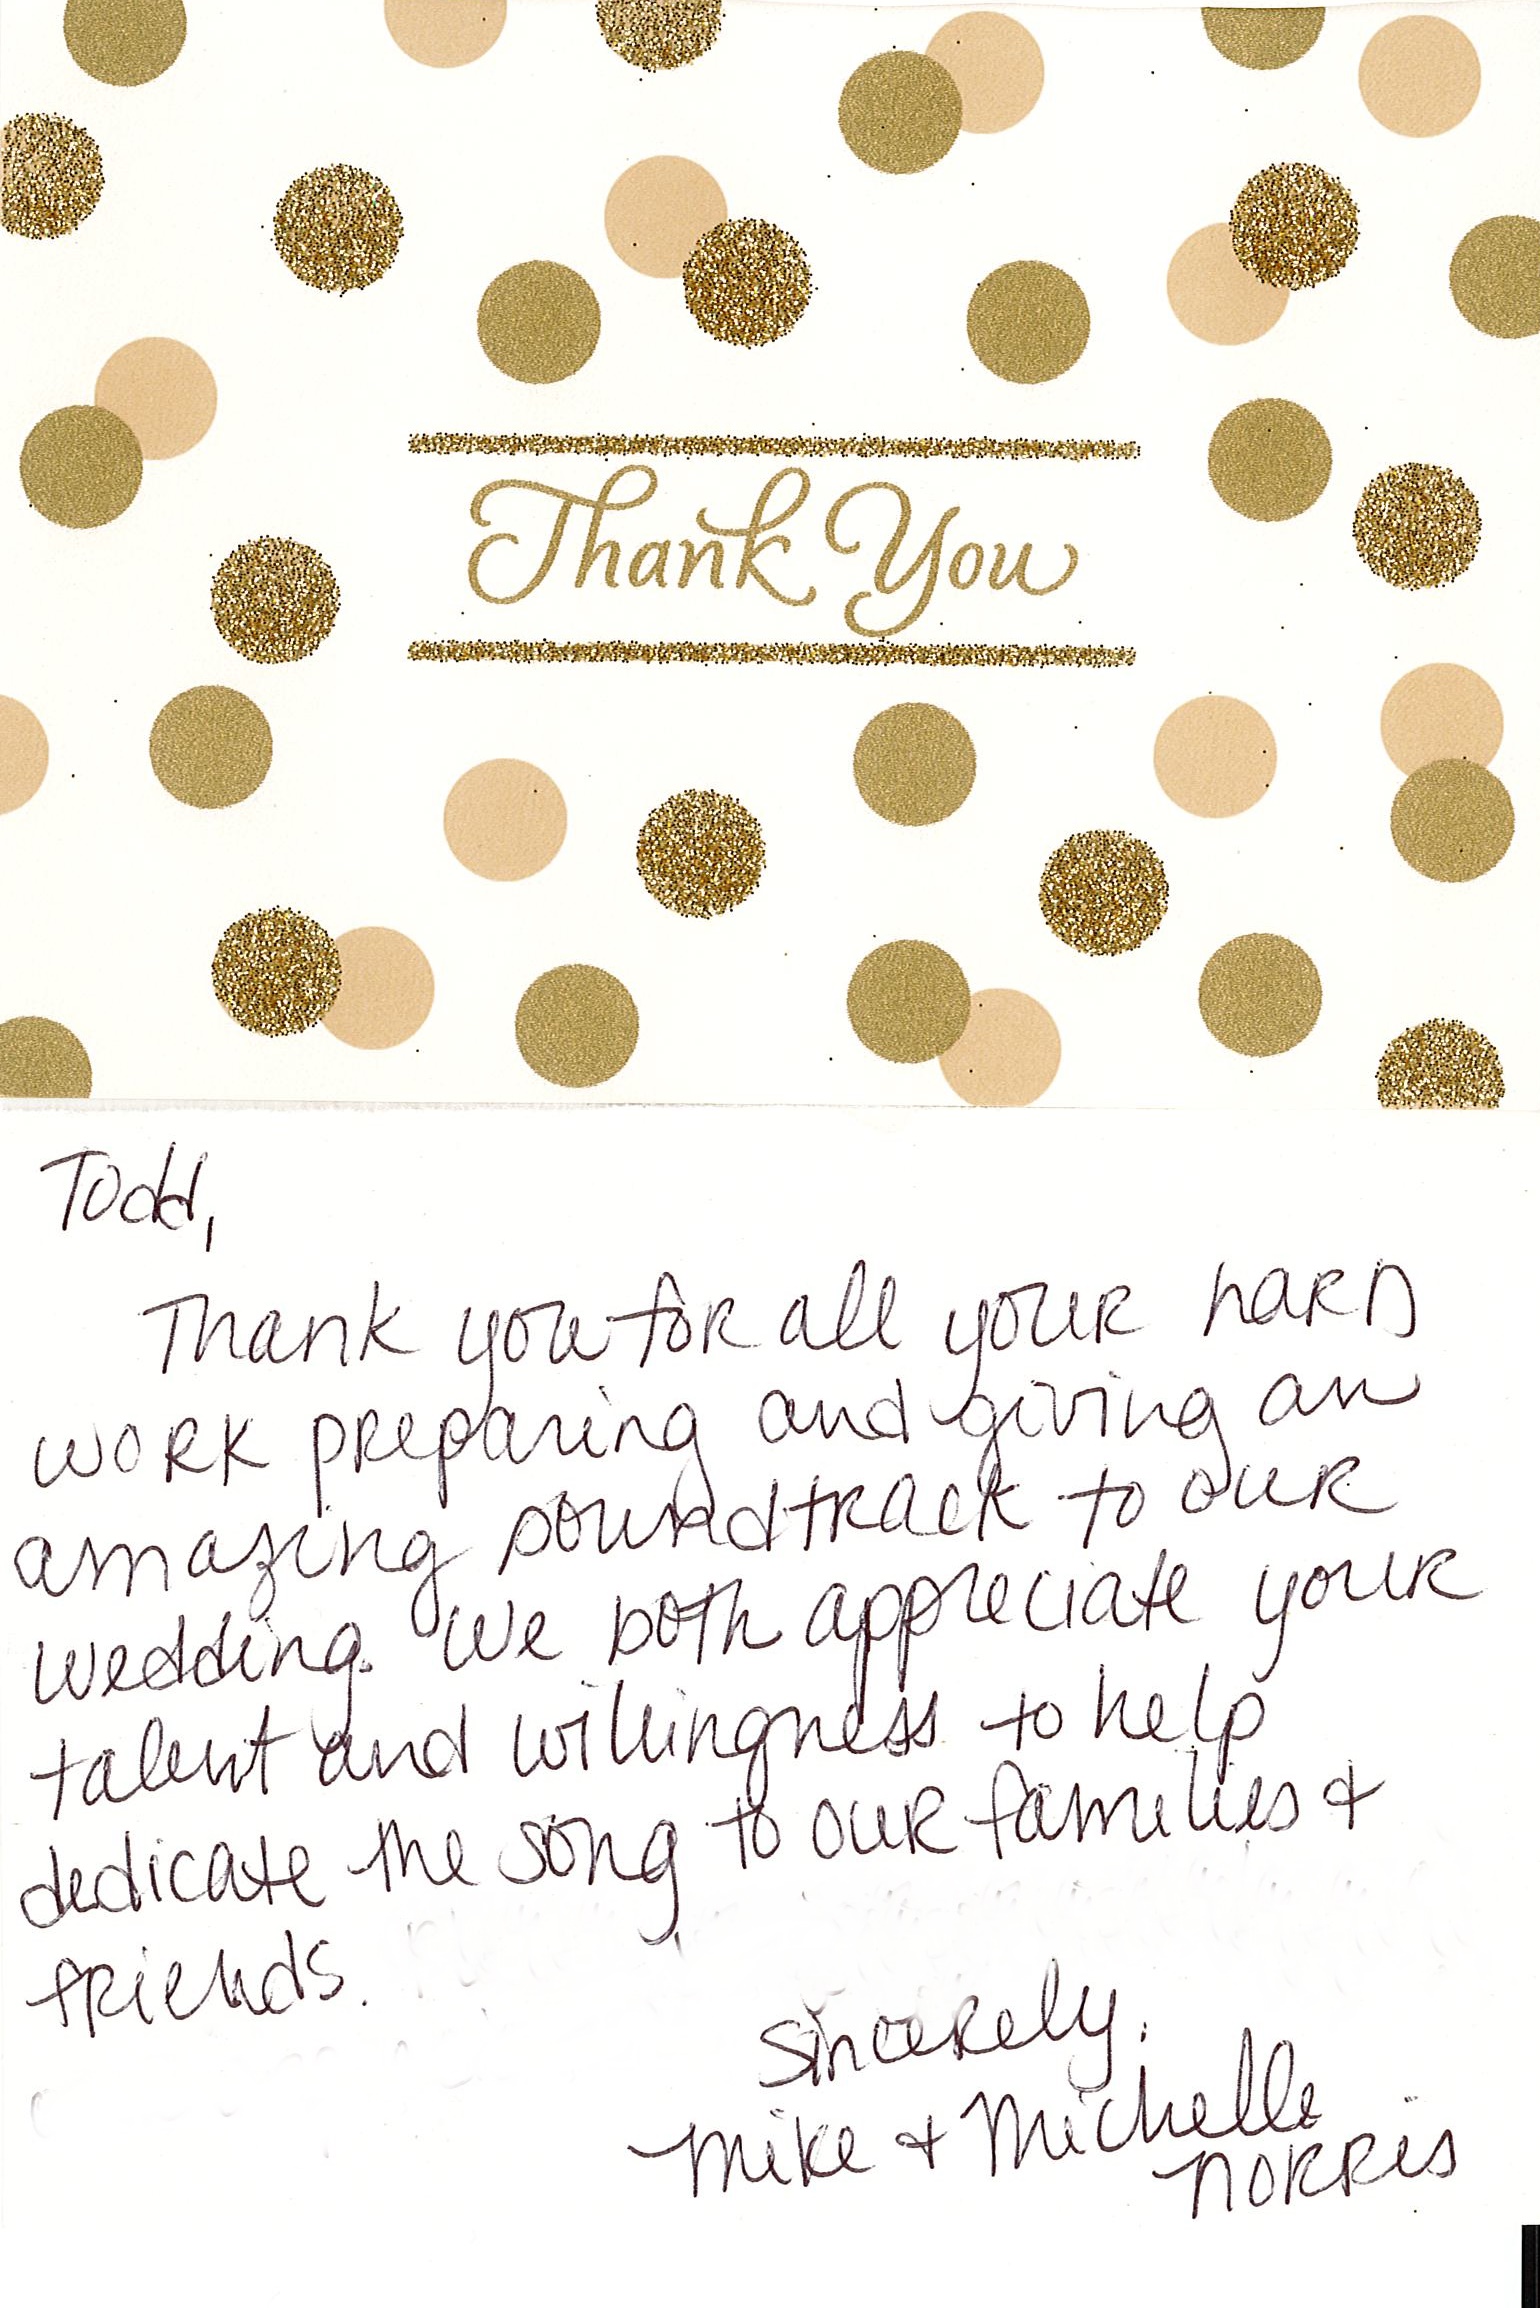 Thank You
Todd,
Thank you for all your hard
work preparing and giving an
amazing soundtrack to our
wedding. We both appreciate your
talent and willingness to help
dedicate the song to our families &
friends.
Sincerely,
Mike & Michelle
Norris